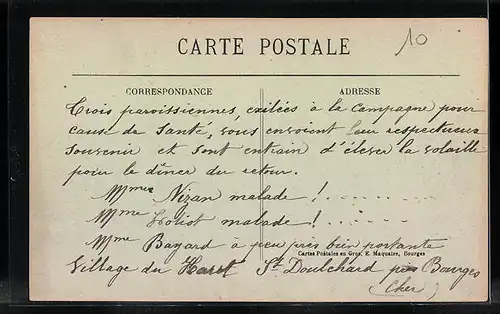 CARTE POSTALE
10
CORRESPONDANCE
ADRESSE
Trois paroissiennes, exilées à la Campagne pour
cause de Santé, vous envoient leur respectueux
Souvenir et sont entrain d'élever la volaille
pour le dîner du retour.
Mmes Nizan malade !.......
Mme malade !.......
Mme Bayard à peu près bien portante
Cartes Postales en Gros, E. Maquaire, Bourges
Village du St Doulchard près Bourges
(Cher)